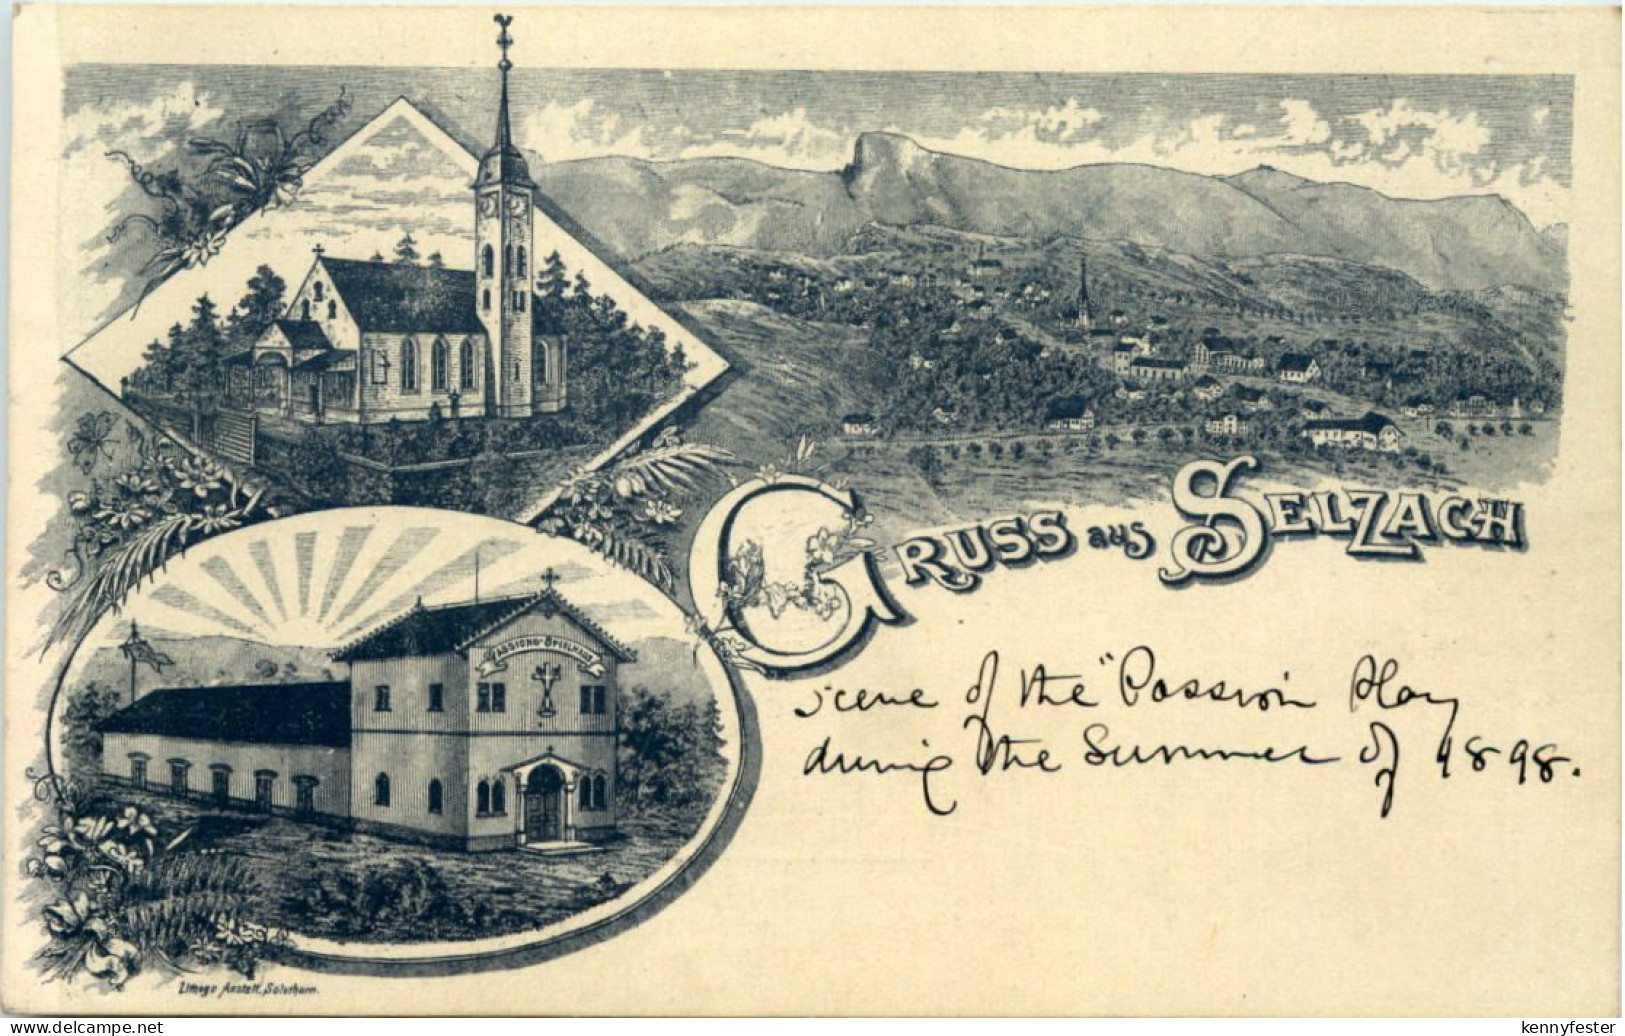 PASSIONS-SPIELHAUS
GRUSS aus SELZACH
scene of the "Passion Play
during the Summer of 1898.
Lithogr Anstalt, Solothurn.
delcampe.net
kennyfester